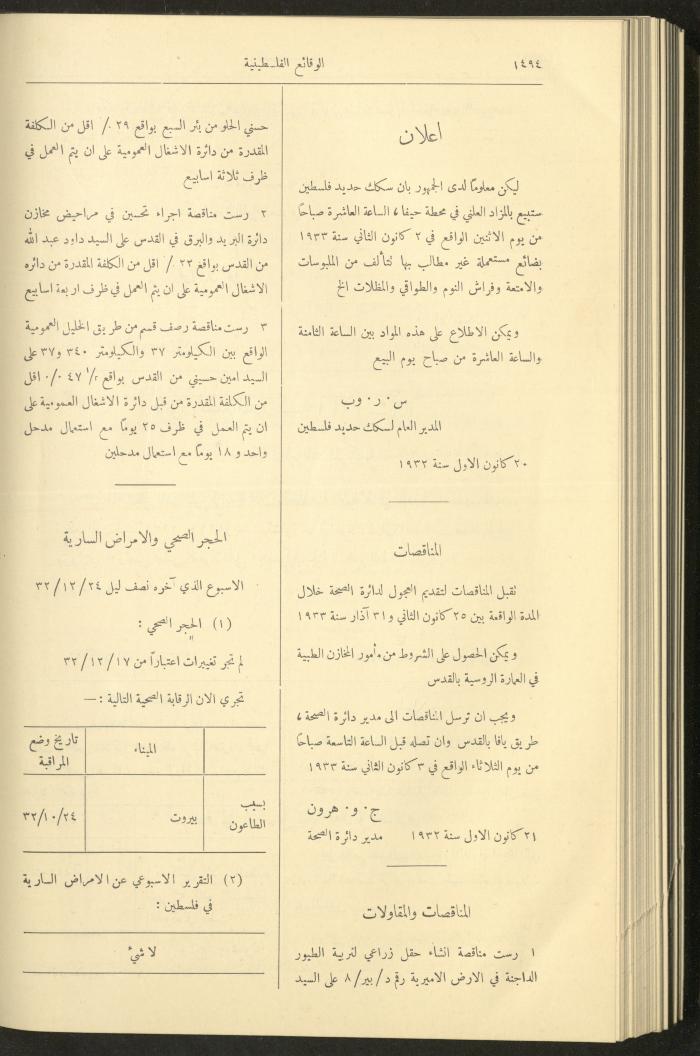 ١٤٩٤
الوقائع الفلسطينية
اعلان
ليكن معلومًا لدى الجمهور بان سكك حديد فلسطين
ستبيع بالمزاد العلني في محطة حيفا، الساعة العاشرة صباحًا
من يوم الاثنين الواقع في ٢ كانون الثاني سنة ١٩٣٣
بضائع مستعملة غير مطالب بها تتألف من الملبوسات
والامتعة وفراش النوم والطواقي والمظلات الخ
ويمكن الاطلاع على هذه المواد بين الساعة الثامنة
والساعة العاشرة من صباح يوم البيع
س. ر. وب
المدير العام لسكك حديد فلسطين
٢٠ كانون الاول سنة ١٩٣٢
المناقصات
تقبل المناقصات لتقديم العجول لدائرة الصحة خلال
المدة الواقعة بين ٢٥ كانون الثاني و٣١ آذار سنة ١٩٣٣
ويمكن الحصول على الشروط من مأمور المخازن الطبية
في العمارة الروسية بالقدس
ويجب ان ترسل المناقصات الى مدير دائرة الصحة،
طريق يافا بالقدس وان تصله قبل الساعة التاسعة صباحًا
من يوم الثلاثاء الواقع في ٣ كانون الثاني سنة ١٩٣٣
ج. و. هرون
٢١ كانون الاول سنة ١٩٣٢ مدير دائرة الصحة
المناقصات والمقاولات
١ رست مناقصة انشاء حقل زراعي لتربية الطيور
الداجنة في الارض الاميرية رقم د/بير/٨ على السيد
حسني الحلو من بئر السبع بواقع ٢٩ ٠/٠ اقل من الكلفة
المقدرة من دائرة الاشغال العمومية على ان يتم العمل في
ظرف ثلاثة اسابيع
٢ رست مناقصة اجراء تحسين في مراحيض مخازن
دائرة البريد والبرق في القدس على السيد داود عبد الله
من القدس بواقع ٢٣ ٠/٠ اقل من الكلفة المقدرة من دائرة
الاشغال العمومية على ان يتم العمل في ظرف اربعة اسابيع
٣ رست مناقصة رصف قسم من طريق الخليل العمومية
الواقع بين الكيلومتر ٣٧ والكيلومتر ٣٤٠ و٣٧ على
السيد امين حسيني من القدس بواقع ١/٢ ٤٧ ٠/٠ اقل
من الكلفة المقدرة من قبل دائرة الاشغال العمومية على
ان يتم العمل في ظرف ٢٥ يومًا مع استعمال مدحل
واحد و ١٨ يومًا مع استعمال مدحلين
الحجر الصحي والامراض السارية
الاسبوع الذي آخره نصف ليل ٣٢/١٢/٢٤
(١) الحجر الصحي :
لم تجر تغييرات اعتبارًا من ٣٢/١٢/١٧
تجري الان الرقابة الصحية التالية :—
الميناء
تاريخ وضع
المراقبة
بسبب
الطاعون
بيروت
٣٢/١٠/٢٤
(٢) التقرير الاسبوعي عن الامراض السارية
في فلسطين :
لا شيء